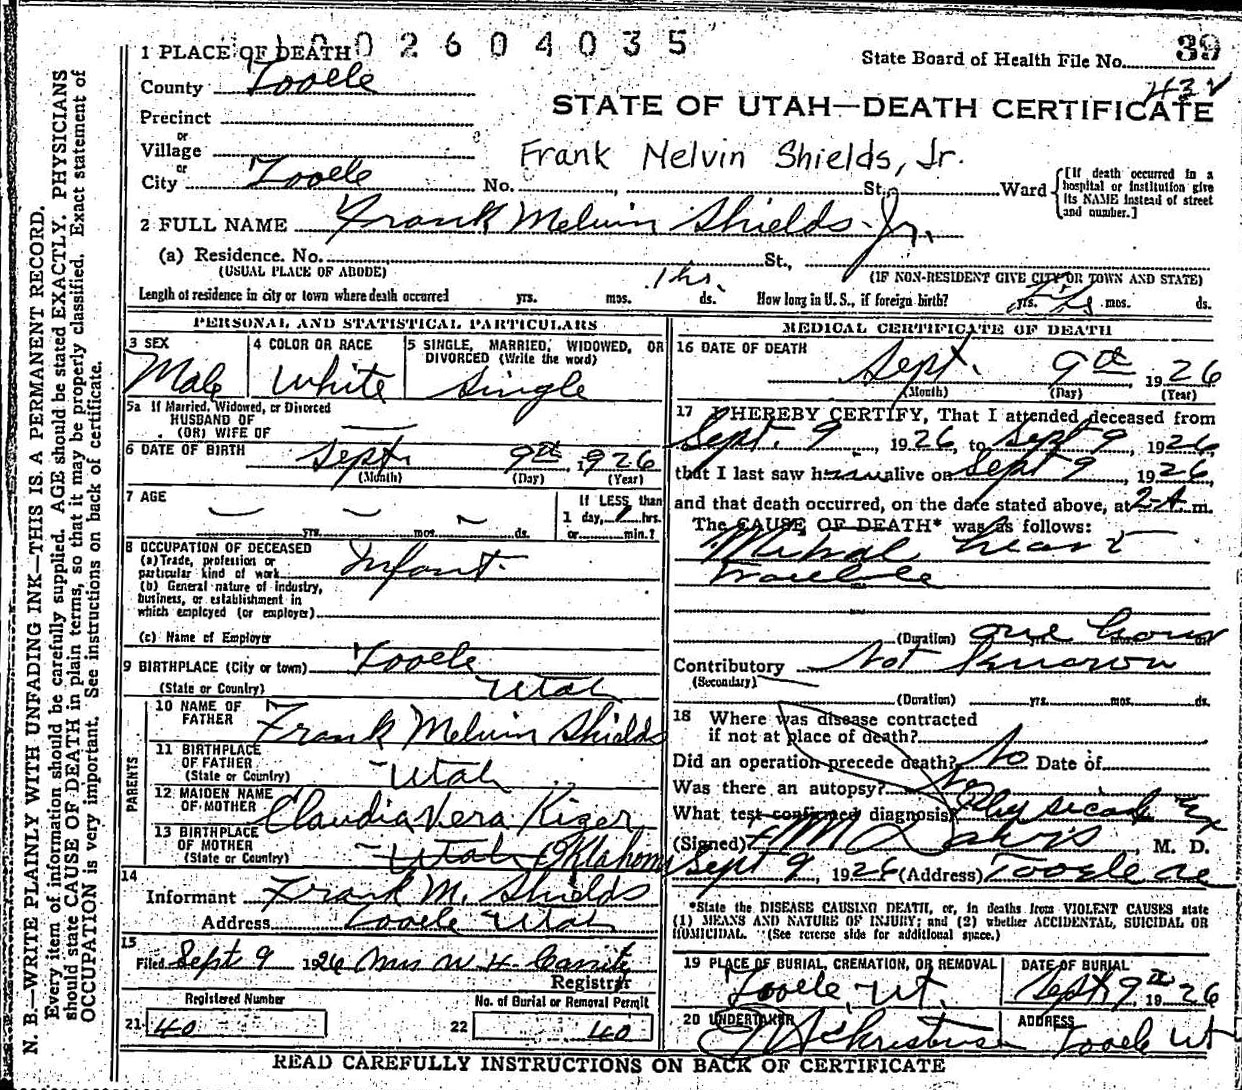 1002604035
39
State Board of Health File No.
432
STATE OF UTAH—DEATH CERTIFICATE
1 PLACE OF DEATH
County Tooele
Precinct
or
Village
or
City Tooele No. , St., Ward
[If death occurred in a hospital or institution give its NAME instead of street and number.]
Frank Melvin Shields, Jr.
2 FULL NAME Frank Melvin Shields Jr.
(a) Residence. No. St.,
(USUAL PLACE OF ABODE) (IF NON-RESIDENT GIVE CITY OR TOWN AND STATE)
Length of residence in city or town where death occurred yrs. mos. 1 hrs. ds. How long in U. S., if foreign birth? yrs. mos. ds.
PERSONAL AND STATISTICAL PARTICULARS
3 SEX Male
4 COLOR OR RACE White
5 SINGLE, MARRIED, WIDOWED, OR DIVORCED (Write the word) Single
5a If Married, Widowed, or Divorced
HUSBAND OF
(OR) WIFE OF —
6 DATE OF BIRTH Sept. 9th, 1926
(Month) (Day) (Year)
7 AGE — yrs. — mos. — ds.
If LESS than
1 day, 1 hrs.
or min.?
8 OCCUPATION OF DECEASED
(a) Trade, profession or
particular kind of work Infant
(b) General nature of industry,
business, or establishment in
which employed (or employer)
(c) Name of Employer
9 BIRTHPLACE (City or town) Tooele
(State or Country) Utah
PARENTS
10 NAME OF FATHER Frank Melvin Shields
11 BIRTHPLACE OF FATHER
(State or Country) Utah
12 MAIDEN NAME OF MOTHER Claudia Vera Kiger
13 BIRTHPLACE OF MOTHER
(State or Country) Utah Oklahoma
14
Informant Frank M. Shields
Address Tooele Utah
15
Filed Sept 9 1926 Mrs W. H.
Registrar
Registered Number
21 40
No. of Burial or Removal Permit
22 40
MEDICAL CERTIFICATE OF DEATH
16 DATE OF DEATH
Sept. 9th, 1926
(Month) (Day) (Year)
17 I HEREBY CERTIFY, That I attended deceased from
Sept. 9, 1926, to Sept 9, 1926,
that I last saw him alive on Sept 9, 1926,
and that death occurred, on the date stated above, at 2 A. m.
The CAUSE OF DEATH* was as follows:
Mitral heart
trouble
(Duration) one hour
Contributory Not Known
(Secondary)
(Duration) yrs. mos. ds.
18 Where was disease contracted
if not at place of death?
Did an operation precede death? No Date of
Was there an autopsy? No
What test confirmed diagnosis? Physical Ex
(Signed) , M. D.
Sept 9, 1926 (Address) Tooele
*State the DISEASE CAUSING DEATH, or, in deaths from VIOLENT CAUSES state
(1) MEANS AND NATURE OF INJURY; and (2) whether ACCIDENTAL, SUICIDAL OR
HOMICIDAL. (See reverse side for additional space.)
19 PLACE OF BURIAL, CREMATION, OR REMOVAL
Tooele, Ut.
DATE OF BURIAL
Sept 9th 1926
20 UNDERTAKER
ADDRESS
Tooele Ut
READ CAREFULLY INSTRUCTIONS ON BACK OF CERTIFICATE
N. B.—WRITE PLAINLY WITH UNFADING INK—THIS IS A PERMANENT RECORD.
Every item of information should be carefully supplied. AGE should be stated EXACTLY. PHYSICIANS
should state CAUSE OF DEATH in plain terms, so that it may be properly classified. Exact statement of
OCCUPATION is very important. See instructions on back of certificate.